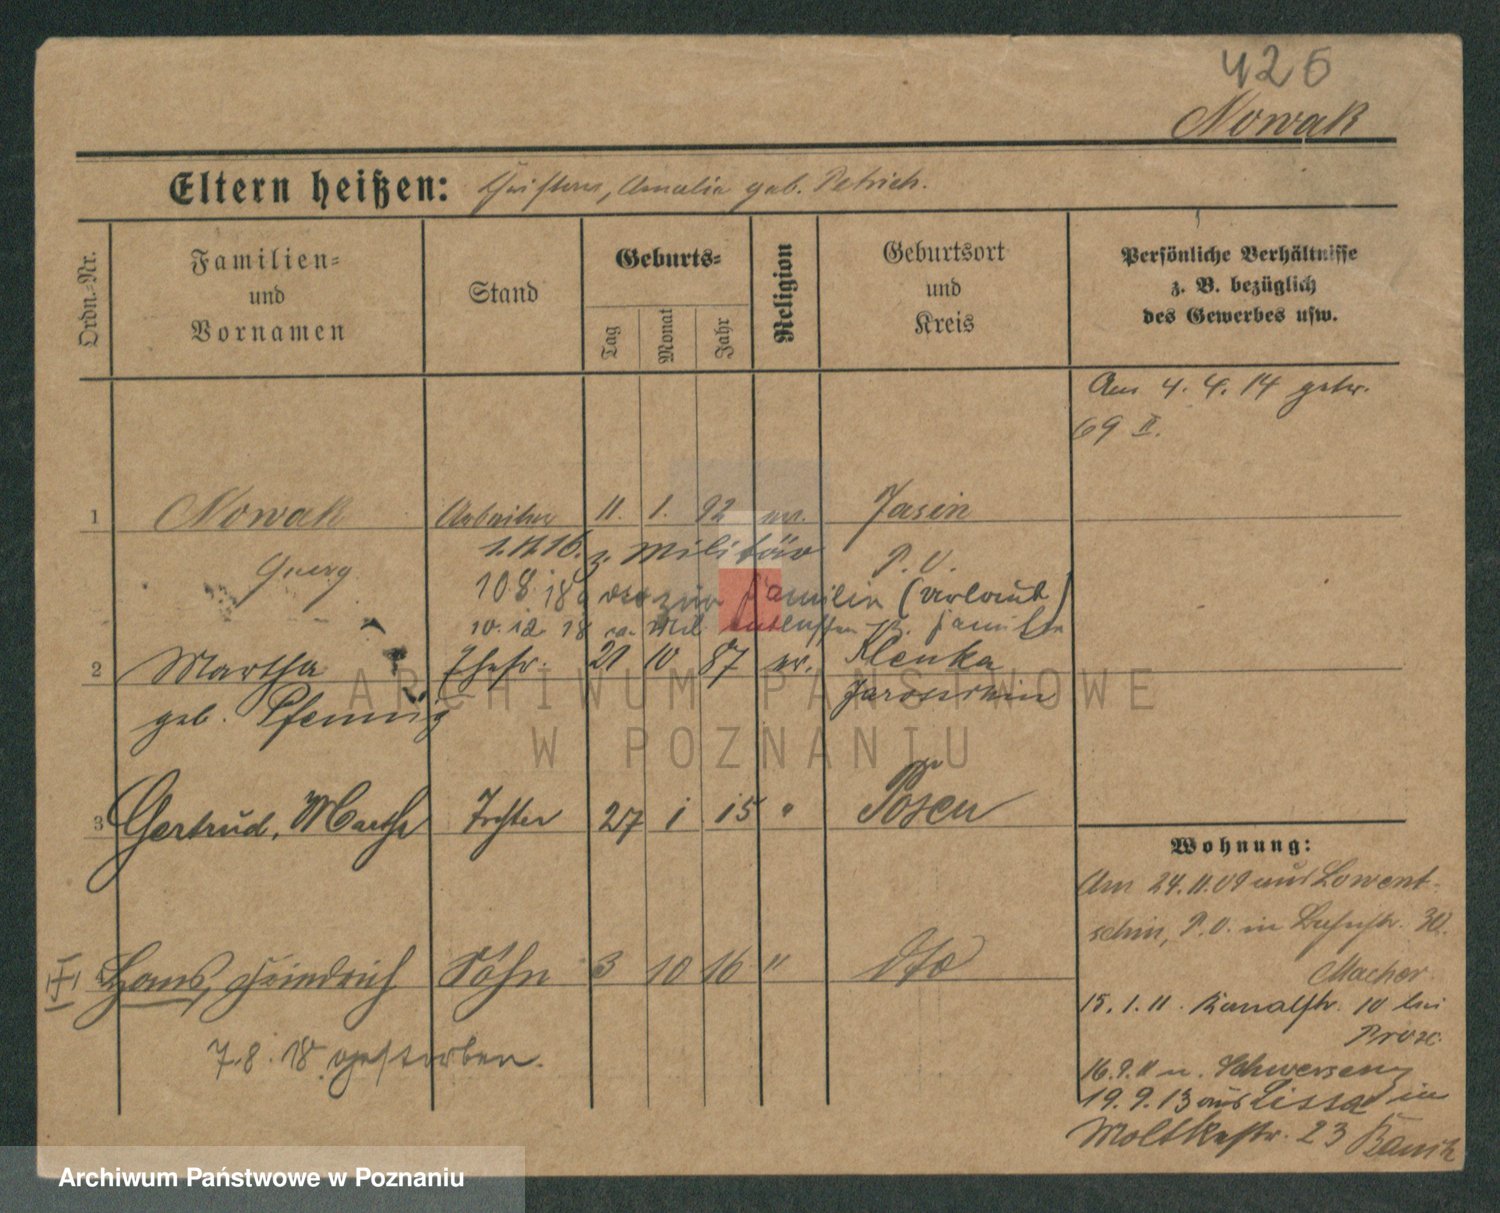 426
Nowak
Eltern heißen: Amalie geb. Petrich.
Ordn.-Nr.
Familien-
und
Vornamen
Stand
Geburts-
Tag
Monat
Jahr
Religion
Geburtsort
und
Kreis
Persönliche Verhältnisse
z. B. bezüglich
des Gewerbes usw.
Am 4. 4. 14 getr.
69 II.
1 Nowak Arbeiter 11. 1. 92 ev. Jasin
Georg P. O.
1.11.16. z. Militär
10.8.18 zur Familie (Urlaub)
10.12.18 v. Mil. entlassen z. Familie
2 Martha Ehefr. 21 10 87 ev. Klenka
geb. Pfennig Jarotschin
3 Gertrud, Martha Tochter 27 1 15 " Posen
Hans, Friedrich Sohn 3 10 16 " dto
7.8.18 gestorben.
Wohnung:
Am 24.11.09 aus Lowent-
schin, P.O. in 30.
Macher
15.1.11. Kanalstr. 10 bei
16.9.11 n. Schwersenz
19.9.13 aus Lissa in
Moltkestr. 23
ARCHIWUM PAŃSTWOWE
W POZNANIU
Archiwum Państwowe w Poznaniu